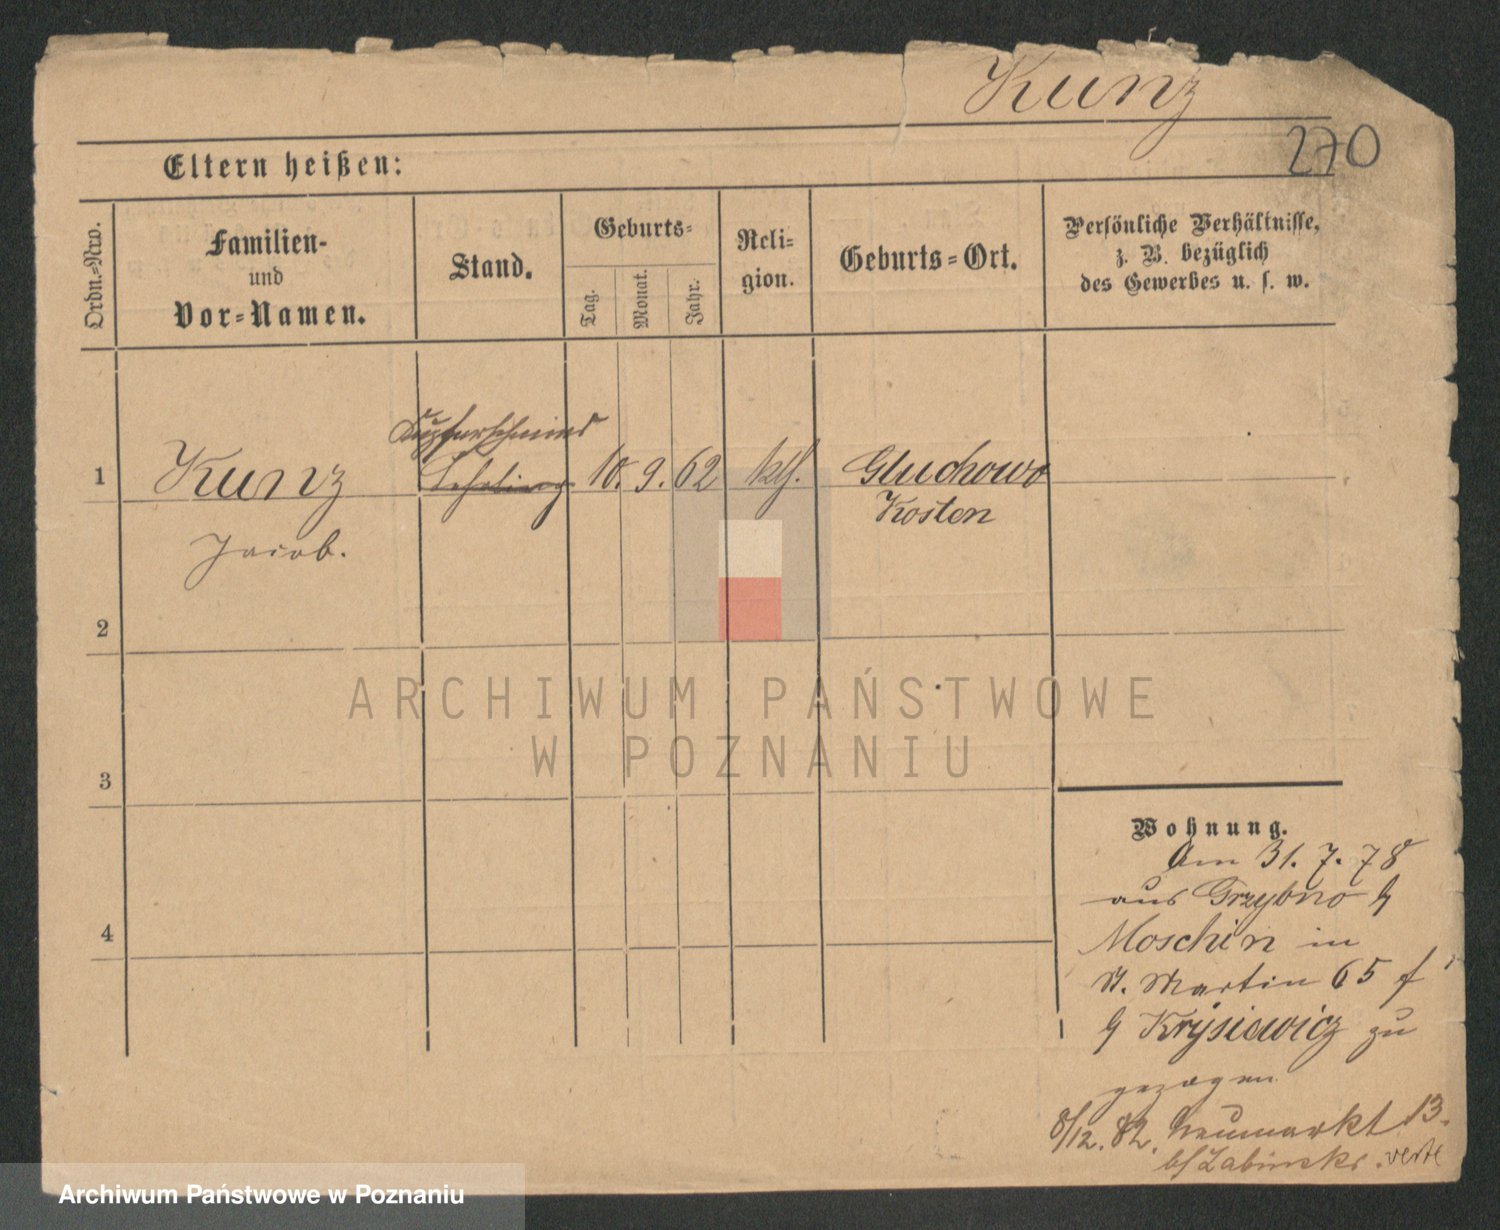 Kunz
270
Eltern heißen:
Ordn.=Nro.
Familien-
und
Vor=Namen.
Stand.
Geburts=
Tag.
Monat.
Jahr.
Reli=
gion.
Geburts=Ort.
Persönliche Verhältnisse,
z. B. bezüglich
des Gewerbes u. s. w.
Kupferschmied
1 Kunz Lehrling 10. 9. 62 klf. Gluchowo
Kosten
Jacob.
2
3
4
ARCHIWUM PAŃSTWOWE
W POZNANIU
Wohnung.
Am 31. 7. 78
aus Grzybno b/
Moschin in
St. Martin 65
b/ Krysiewicz zu
gezogen
8/12. 82. Neumarkt 13.
b/ Zabinski. verte
Archiwum Państwowe w Poznaniu